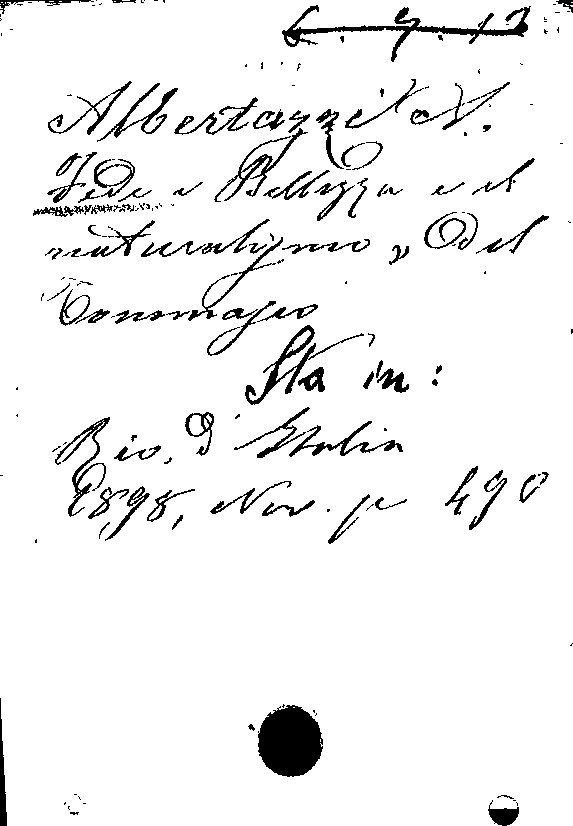 6. 7. 13
Albertazzi A.
Fede e Bellezza e il
naturalismo „ Del
Tommaseo
Sta in:
Riv. d' Italia
1898, Nov. p 490